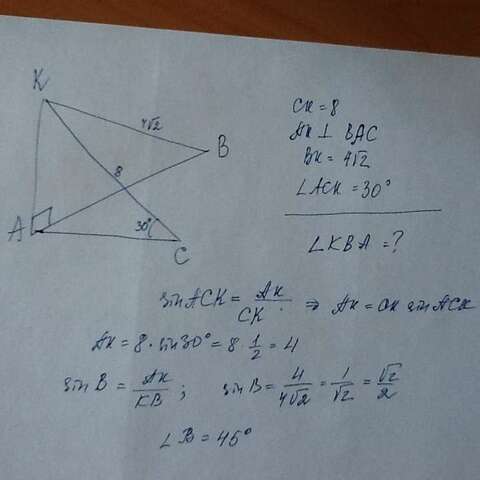 K
4√2
B
8
A
30°
C
CK = 8
AK ⊥ BAC
BK = 4√2
∠ACK = 30°
∠KBA = ?
sin ACK = AK/CK ⇒ AK = CK sin ACK
AK = 8 · sin 30° = 8 · 1/2 = 4
sin B = AK/KB ; sin B = 4/4√2 = 1/√2 = √2/2
∠B = 45°